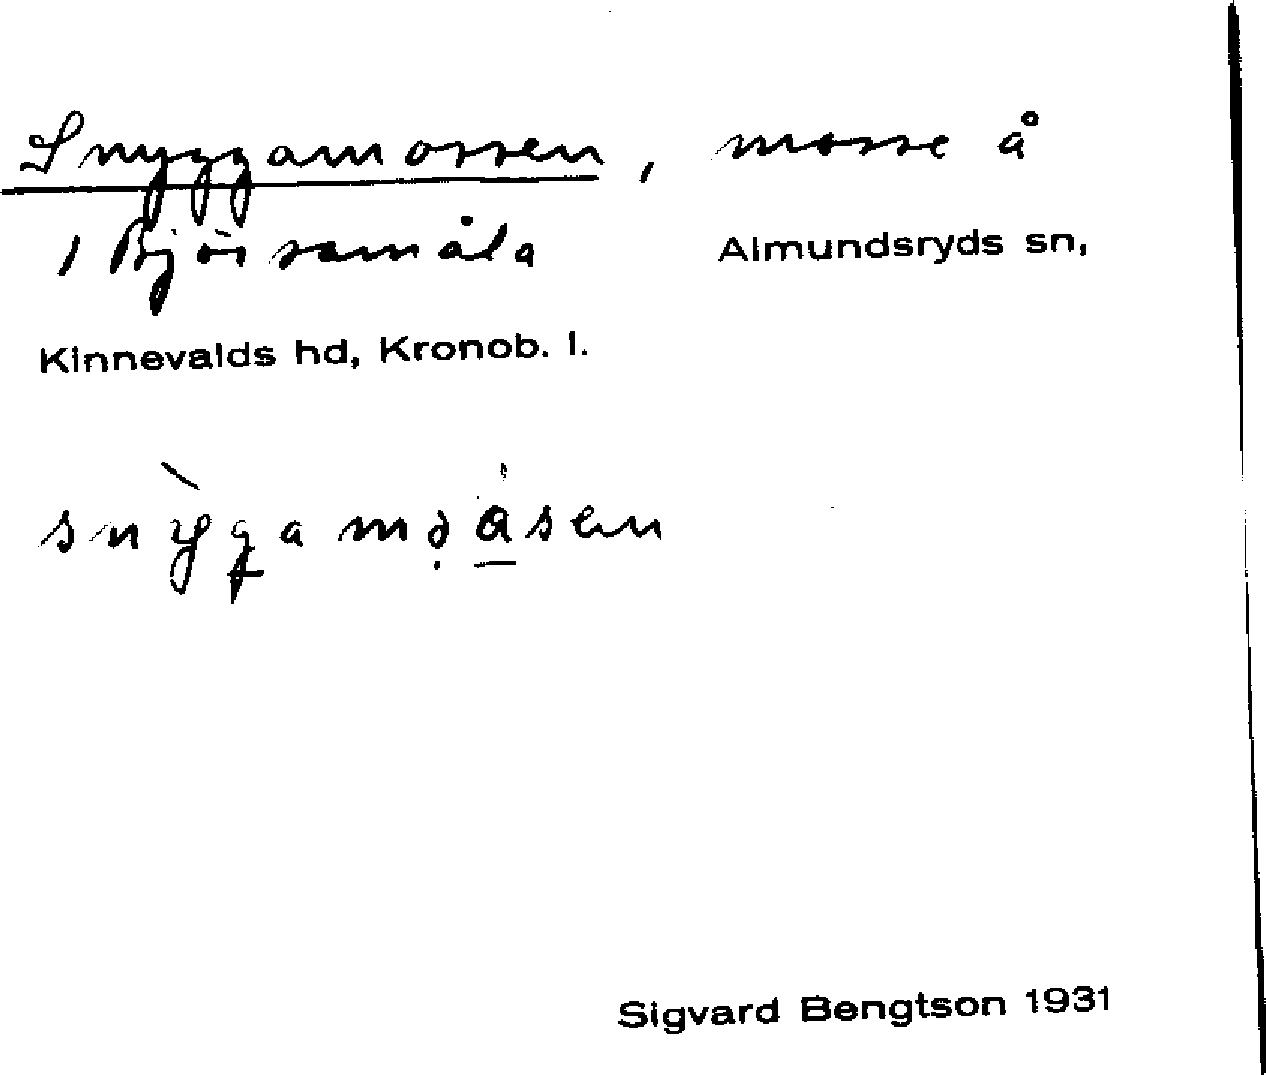 Snyggamossen, mosse å
1 Björsamåla Almundsryds sn,
Kinnevalds hd, Kronob. l.
Sigvard Bengtson 1931